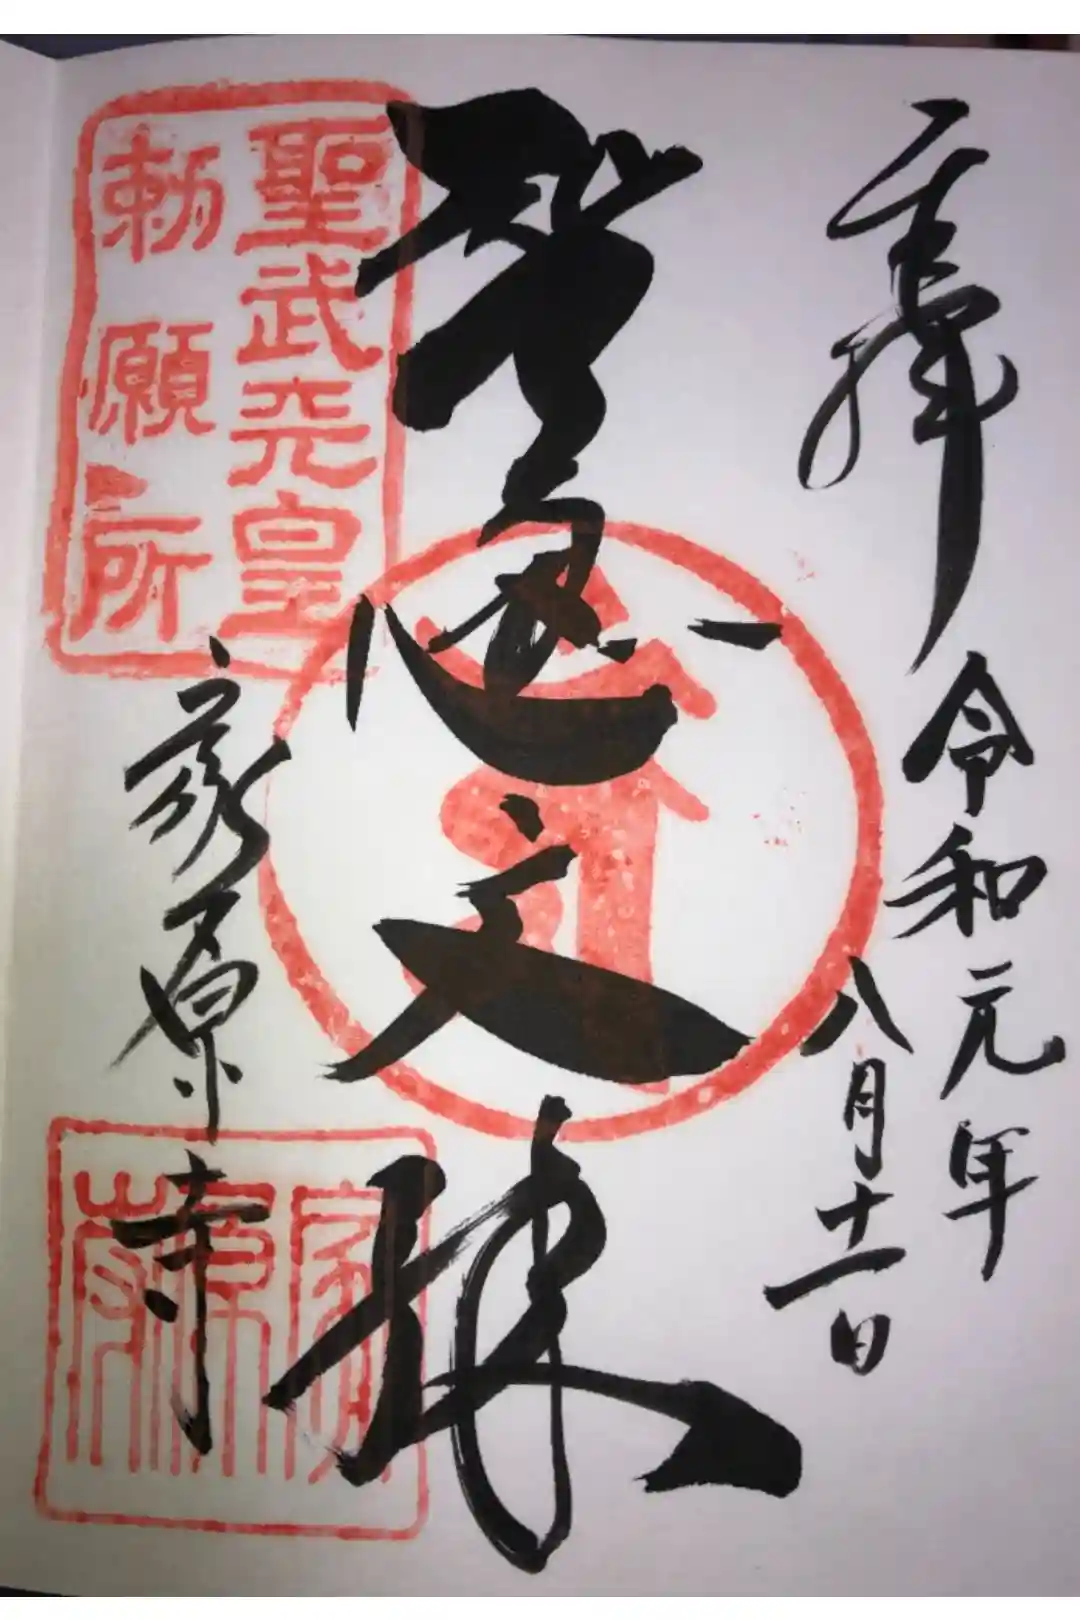 奉拝
令和元年
八月十一日
智恵文殊
聖武天皇
勅願所
家原寺